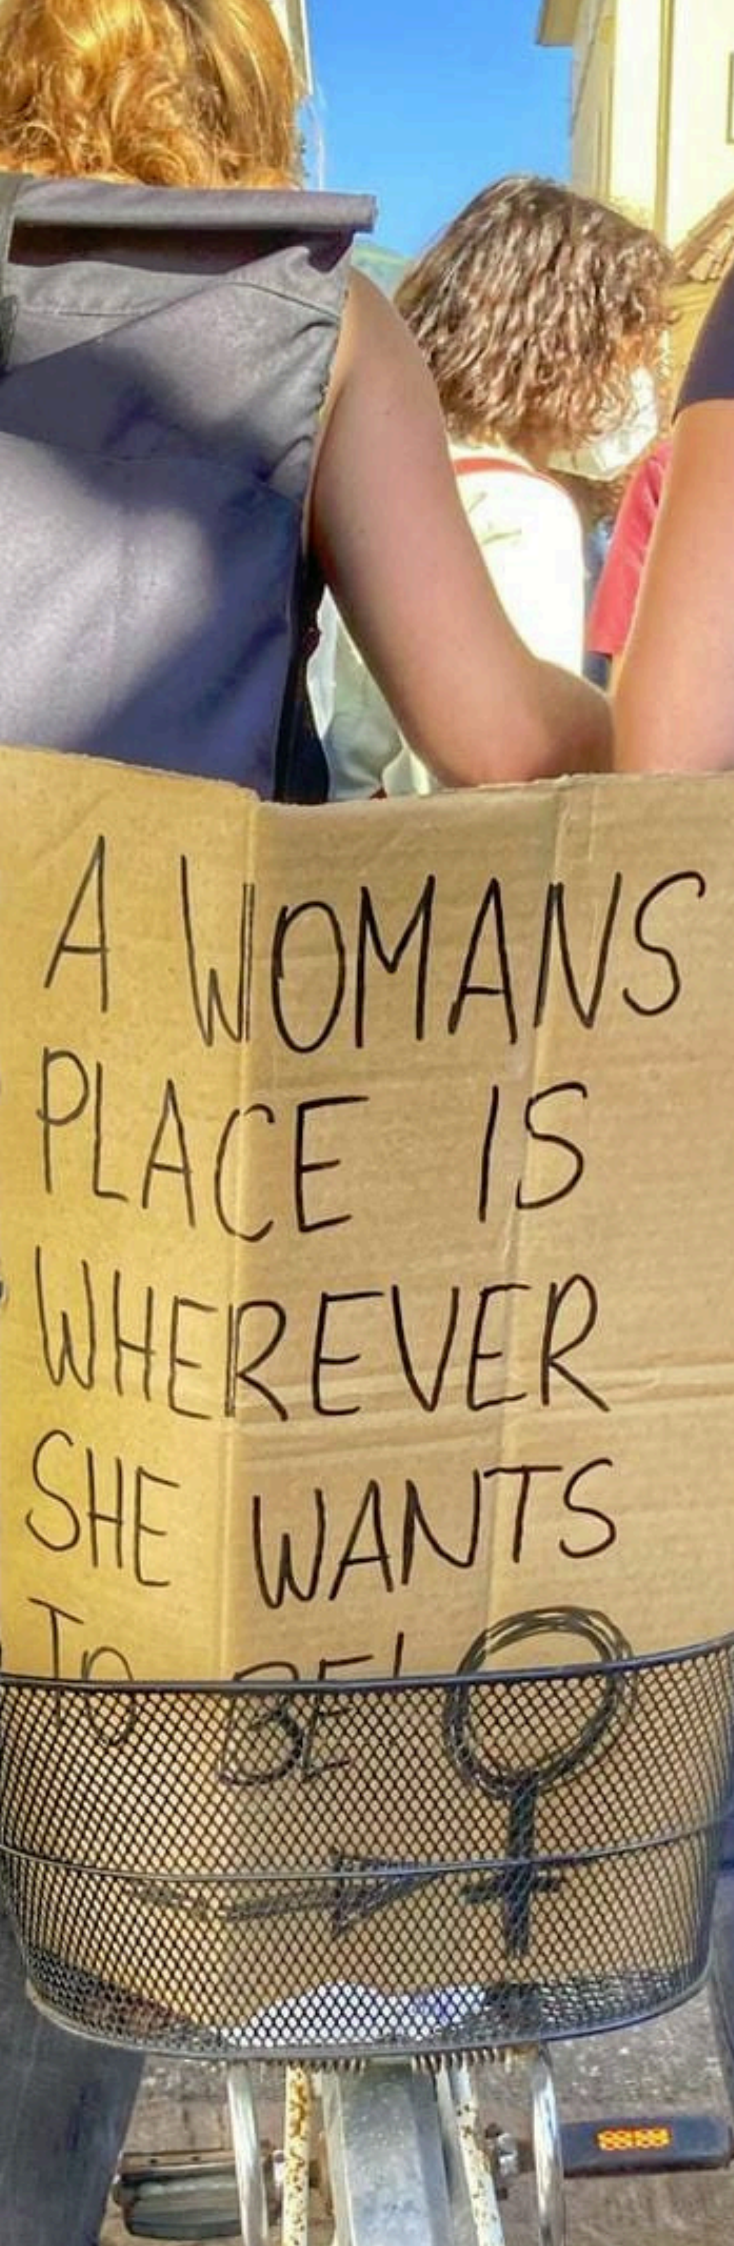 A WOMANS
PLACE IS
WHEREVER
SHE WANTS
TO BE!